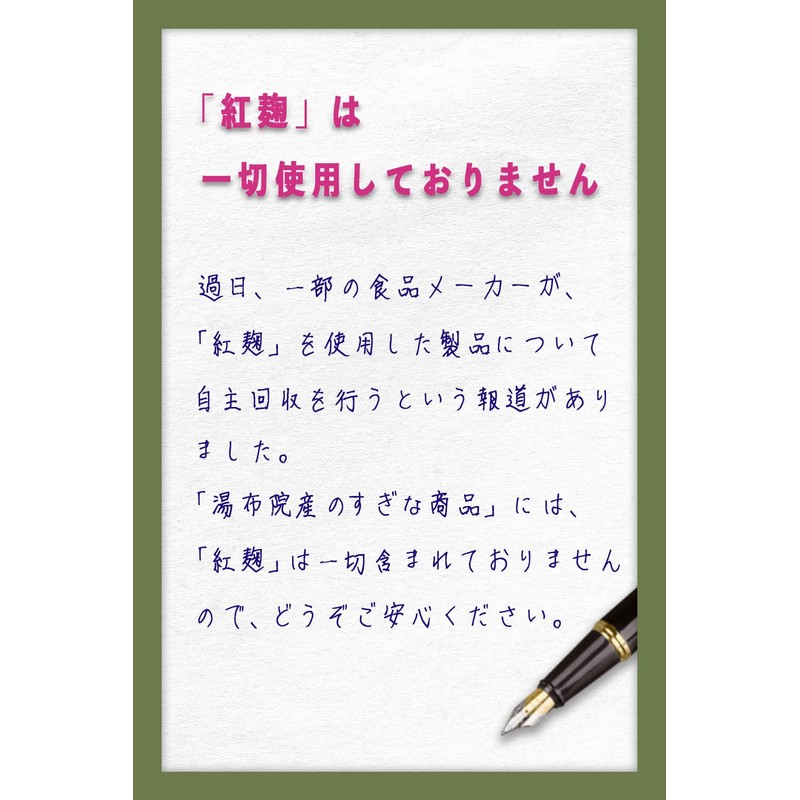 「紅麹」は
一切使用しておりません
過日、一部の食品メーカーが、
「紅麹」を使用した製品について
自主回収を行うという報道があり
ました。
「湯布院産のすぎな商品」には、
「紅麹」は一切含まれておりません
ので、どうぞご安心ください。